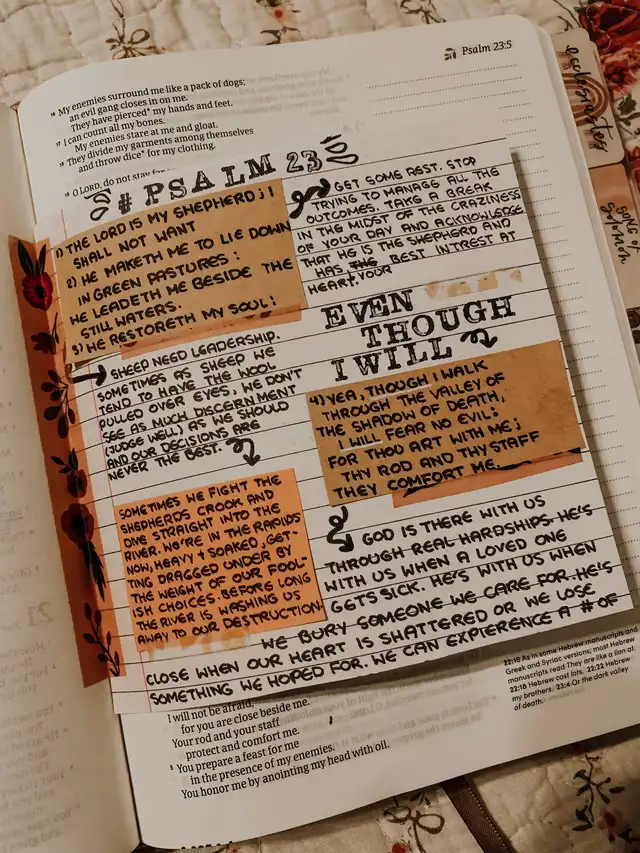 Psalm 23:5
16 My enemies surround me like a pack of dogs;
an evil gang closes in on me.
They have pierced* my hands and feet.
17 I can count all my bones.
My enemies stare at me and gloat.
18 They divide my garments among themselves
and throw dice* for my clothing.
19 O LORD, do not stay
# PSALM 23
1) THE LORD IS MY SHEPHERD; I
SHALL NOT WANT
2) HE MAKETH ME TO LIE DOWN
IN GREEN PASTURES:
HE LEADETH ME BESIDE THE
STILL WATERS.
3) HE RESTORETH MY SOUL:
SHEEP NEED LEADERSHIP.
SOMETIMES AS SHEEP WE
TEND TO HAVE THE WOOL
PULLED OVER EYES, WE DON'T
SEE AS MUCH DISCERNMENT
(JUDGE WELL) AS WE SHOULD
AND OUR DECISIONS ARE
NEVER THE BEST.
SOMETIMES WE FIGHT THE
SHEPHERDS CROOK AND
DIVE STRAIGHT INTO THE
RIVER. WE'RE IN THE RAPIDS
NOW, HEAVY & SOAKED, GET-
TING DRAGGED UNDER BY
THE WEIGHT OF OUR FOOL-
ISH CHOICES. BEFORE LONG
THE RIVER IS WASHING US
AWAY TO OUR DESTRUCTION.
GET SOME REST. STOP
TRYING TO MANAGE ALL THE
OUTCOMES. TAKE A BREAK
IN THE MIDST OF THE CRAZINESS
OF YOUR DAY AND ACKNOWLEDGE
THAT HE IS THE SHEPHERD AND
HAS THE BEST INTREST AT
HEART. YOUR
EVEN
THOUGH
I WILL
4) YEA, THOUGH I WALK
THROUGH THE VALLEY OF
THE SHADOW OF DEATH,
I WILL FEAR NO EVIL:
FOR THOU ART WITH ME;
THY ROD AND THY STAFF
THEY COMFORT ME.
GOD IS THERE WITH US
THROUGH REAL HARDSHIPS. HE'S
WITH US WHEN A LOVED ONE
GETS SICK. HE'S WITH US WHEN
WE BURY SOMEONE WE CARE FOR. HE'S
CLOSE WHEN OUR HEART IS SHATTERED OR WE LOSE
SOMETHING WE HOPED FOR. WE CAN EXPIERENCE A # OF
I will not be afraid,
for you are close beside me.
Your rod and your staff
protect and comfort me.
5 You prepare a feast for me
in the presence of my enemies.
You honor me by anointing my head with oil.
22:16 As in some Hebrew manuscripts and
Greek and Syriac versions; most Hebrew
manuscripts read They are like a lion at.
22:18 Hebrew cast lots. 22:22 Hebrew
my brothers. 23:4 Or the dark valley
of death.
ecclesiastes
song of
solomon
21